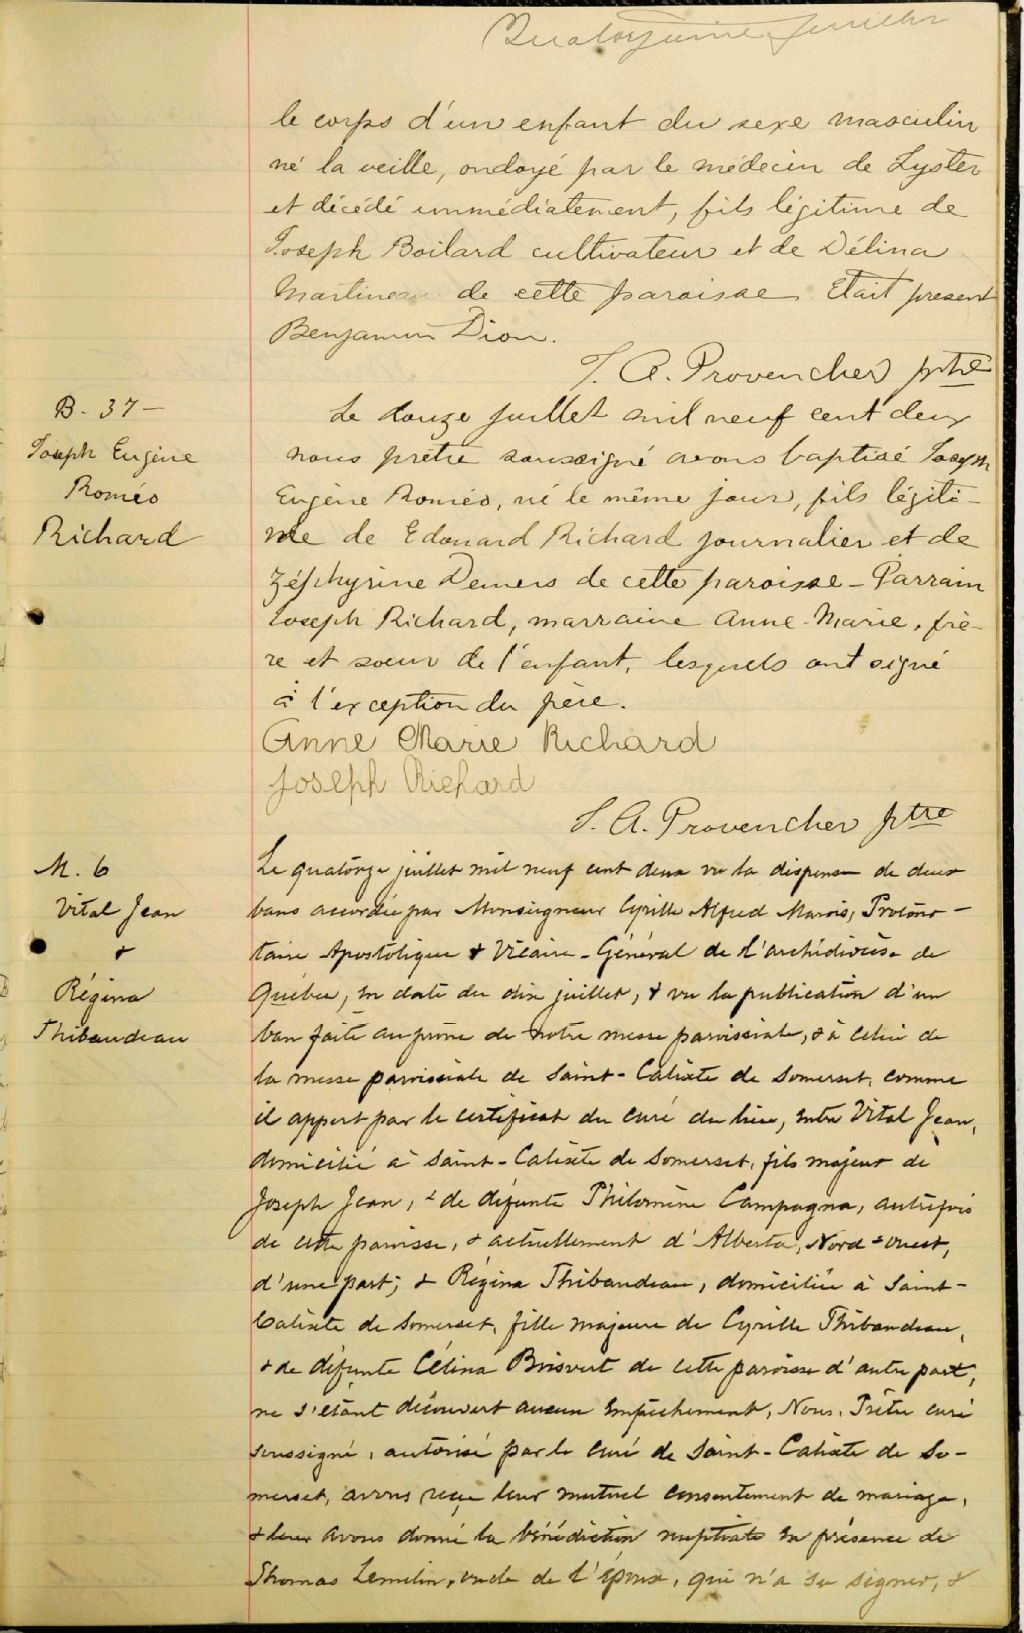 Quatorzième feuillet
le corps d'un enfant du sexe masculin
né la veille, ondoyé par le médecin de Lyster
et décédé immédiatement, fils légitime de
Joseph Boilard cultivateur et de Délina
Martineau de cette paroisse. Etait present
Benjamin Dion.
J. A. Provencher ptre
B. 37 -
Joseph Eugène
Roméo
Richard
Le douze juillet mil neuf cent deux
nous prêtre soussigné avons baptisé Joseph
Eugène Roméo, né le même jour, fils légiti-
me de Edouard Richard journalier et de
Zéphyrine Demers de cette paroisse - Parrain
Joseph Richard, marraine Anne-Marie, frè-
re et soeur de l'enfant, lesquels ont signé
à l'exception du père.
Anne Marie Richard
Joseph Richard
J. A. Provencher ptre
M. 6
Vital Jean
&
Régina
Thibaudeau
Le quatorze juillet mil neuf cent deux vu la dispense de deux
bans accordée par Monseigneur Cyrille Alfred Marois, Protono-
taire Apostolique & Vicaire-Général de l'archidiocèse de
Québec, en date du dix juillet, & vu la publication d'un
ban faite au prône de notre messe paroissiale, & à celui de
la messe paroissiale de Saint-Calixte de Somerset, comme
il appert par le certificat du curé du lieu, entre Vital Jean,
domicilié à Saint-Calixte de Somerset, fils majeur de
Joseph Jean, & de défunte Philomène Campagna, autrefois
de cette paroisse, & actuellement d'Alberta, Nord-Ouest,
d'une part; & Régina Thibaudeau, domiciliée à Saint-
Calixte de Somerset, fille majeure de Cyrille Thibaudeau,
& de défunte Célina Boisvert de cette paroisse d'autre part,
ne s'étant découvert aucun empêchement, Nous, Prêtre curé
soussigné, autorisé par le curé de Saint-Calixte de So-
merset, avons reçu leur mutuel consentement de mariage,
& leur avons donné la bénédiction nuptiale en présence de
Thomas Lemelin, oncle de l'époux, qui n'a su signer, &